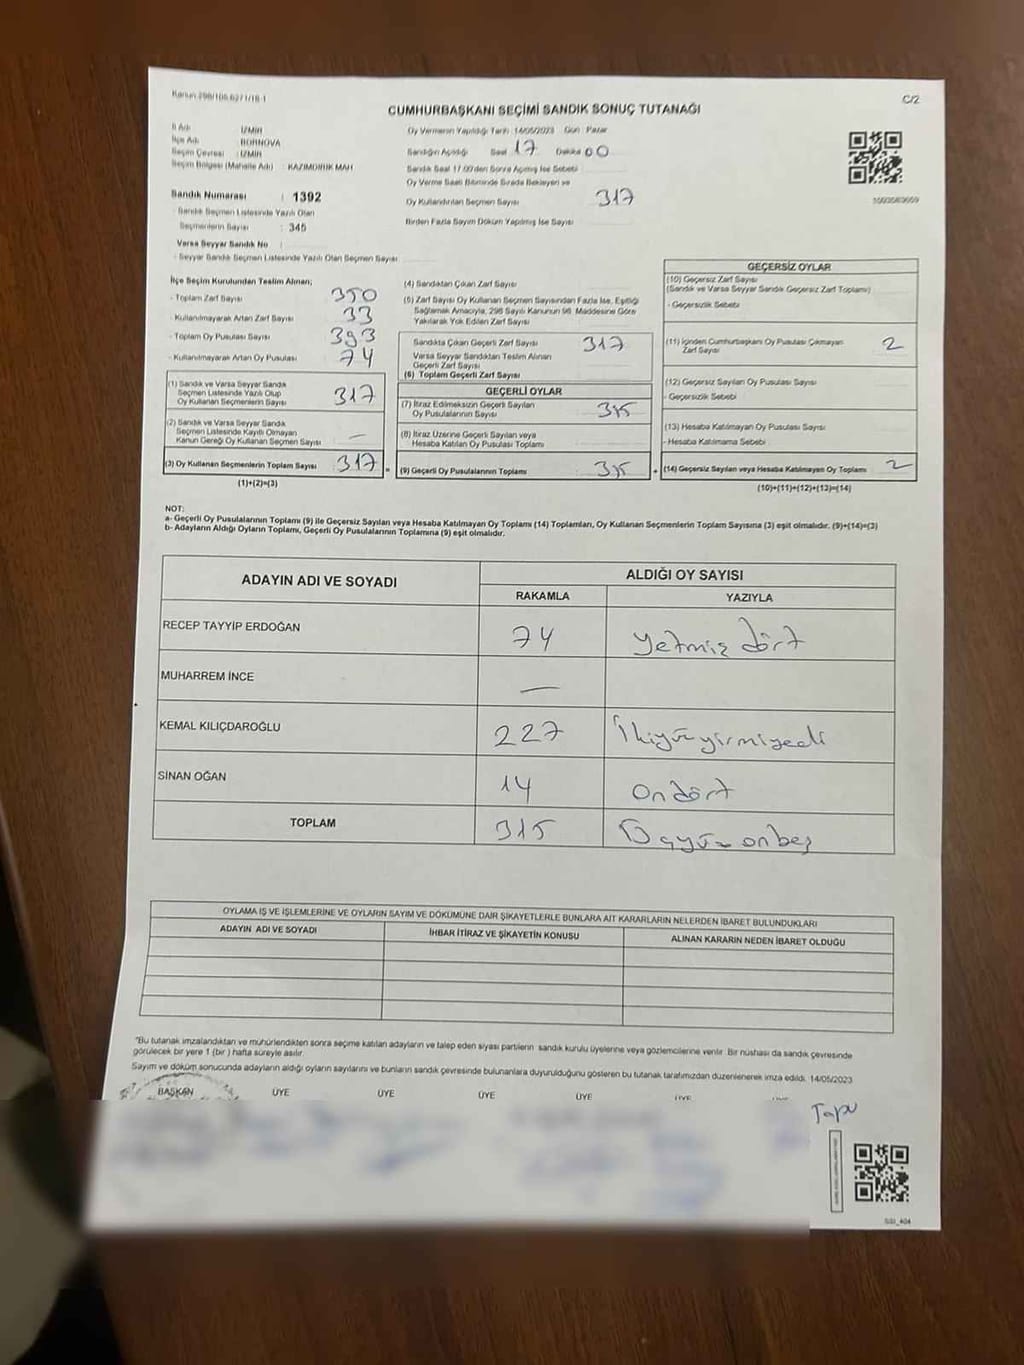 Kanun 298/105-6271/18-1
C/2
CUMHURBAŞKANI SEÇİMİ SANDIK SONUÇ TUTANAĞI
İl Adı : İZMİR
İlçe Adı : BORNOVA
Seçim Çevresi : İZMİR
Seçim Bölgesi (Mahalle Adı) : KAZIMDİRİK MAH
Oy Vermenin Yapıldığı Tarih : 14/05/2023 Gün : Pazar
Sandığın Açıldığı Saat 17 Dakika 00
Sandık Saat 17:00'den Sonra Açılmış İse Sebebi
Oy Verme Saati Bitiminde Sırada Bekleyen ve
Oy Kullandırılan Seçmen Sayısı 317
Birden Fazla Sayım Döküm Yapılmış İse Sayısı
Sandık Numarası : 1392
- Sandık Seçmen Listesinde Yazılı Olan
Seçmenlerin Sayısı : 345
Varsa Seyyar Sandık No :
- Seyyar Sandık Seçmen Listesinde Yazılı Olan Seçmen Sayısı :
İlçe Seçim Kurulundan Teslim Alınan;
- Toplam Zarf Sayısı 350
- Kullanılmayarak Artan Zarf Sayısı 33
- Toplam Oy Pusulası Sayısı 393
- Kullanılmayarak Artan Oy Pusulası 74
(1) Sandık ve Varsa Seyyar Sandık
Seçmen Listesinde Yazılı Olup
Oy Kullanan Seçmenlerin Sayısı 317
(2) Sandık ve Varsa Seyyar Sandık
Seçmen Listesinde Kayıtlı Olmayan
Kanun Gereği Oy Kullanan Seçmen Sayısı —
(3) Oy Kullanan Seçmenlerin Toplam Sayısı 317 =
(1)+(2)=(3)
(4) Sandıktan Çıkan Zarf Sayısı
(5) Zarf Sayısı Oy Kullanan Seçmen Sayısından Fazla İse, Eşitliği
Sağlamak Amacıyla, 298 Sayılı Kanunun 98. Maddesine Göre
Yakılarak Yok Edilen Zarf Sayısı
Sandıkta Çıkan Geçerli Zarf Sayısı 317
Varsa Seyyar Sandıktan Teslim Alınan
Geçerli Zarf Sayısı
(6) Toplam Geçerli Zarf Sayısı
GEÇERLİ OYLAR
(7) İtiraz Edilmeksizin Geçerli Sayılan
Oy Pusulalarının Sayısı 315
(8) İtiraz Üzerine Geçerli Sayılan veya
Hesaba Katılan Oy Pusulası Toplamı
(9) Geçerli Oy Pusulalarının Toplamı 315 +
GEÇERSİZ OYLAR
(10) Geçersiz Zarf Sayısı
(Sandık ve Varsa Seyyar Sandık Geçersiz Zarf Toplamı)
- Geçersizlik Sebebi
(11) İçinden Cumhurbaşkanı Oy Pusulası Çıkmayan
Zarf Sayısı 2
(12) Geçersiz Sayılan Oy Pusulası Sayısı
- Geçersizlik Sebebi
(13) Hesaba Katılmayan Oy Pusulası Sayısı
- Hesaba Katılmama Sebebi
(14) Geçersiz Sayılan veya Hesaba Katılmayan Oy Toplamı 2
(10)+(11)+(12)+(13)=(14)
NOT:
a- Geçerli Oy Pusulalarının Toplamı (9) ile Geçersiz Sayılan veya Hesaba Katılmayan Oy Toplamı (14) Toplamları, Oy Kullanan Seçmenlerin Toplam Sayısına (3) eşit olmalıdır. (9)+(14)=(3)
b- Adayların Aldığı Oyların Toplamı, Geçerli Oy Pusulalarının Toplamına (9) eşit olmalıdır.
ADAYIN ADI VE SOYADI
ALDIĞI OY SAYISI
RAKAMLA YAZIYLA
RECEP TAYYİP ERDOĞAN 74 Yetmiş dört
MUHARREM İNCE —
KEMAL KILIÇDAROĞLU 227 İkiyüzyirmiyedi
SİNAN OĞAN 14 Ondört
TOPLAM 315 Üçyüz onbeş
OYLAMA İŞ VE İŞLEMLERİNE VE OYLARIN SAYIM VE DÖKÜMÜNE DAİR ŞİKAYETLERLE BUNLARA AİT KARARLARIN NELERDEN İBARET BULUNDUKLARI
ADAYIN ADI VE SOYADI İHBAR İTİRAZ VE ŞİKAYETİN KONUSU ALINAN KARARIN NEDEN İBARET OLDUĞU
*Bu tutanak imzalandıktan ve mühürlendikten sonra seçime katılan adayların ve talep eden siyasi partilerin sandık kurulu üyelerine veya gözlemcilerine verilir. Bir nüshası da sandık çevresinde
görülecek bir yere 1 (bir) hafta süreyle asılır.
Sayım ve döküm sonucunda adayların aldığı oyların sayılarını ve bunların sandık çevresinde bulunanlara duyurulduğunu gösteren bu tutanak tarafımızdan düzenlenerek imza edildi. 14/05/2023
BAŞKAN ÜYE ÜYE ÜYE ÜYE ÜYE